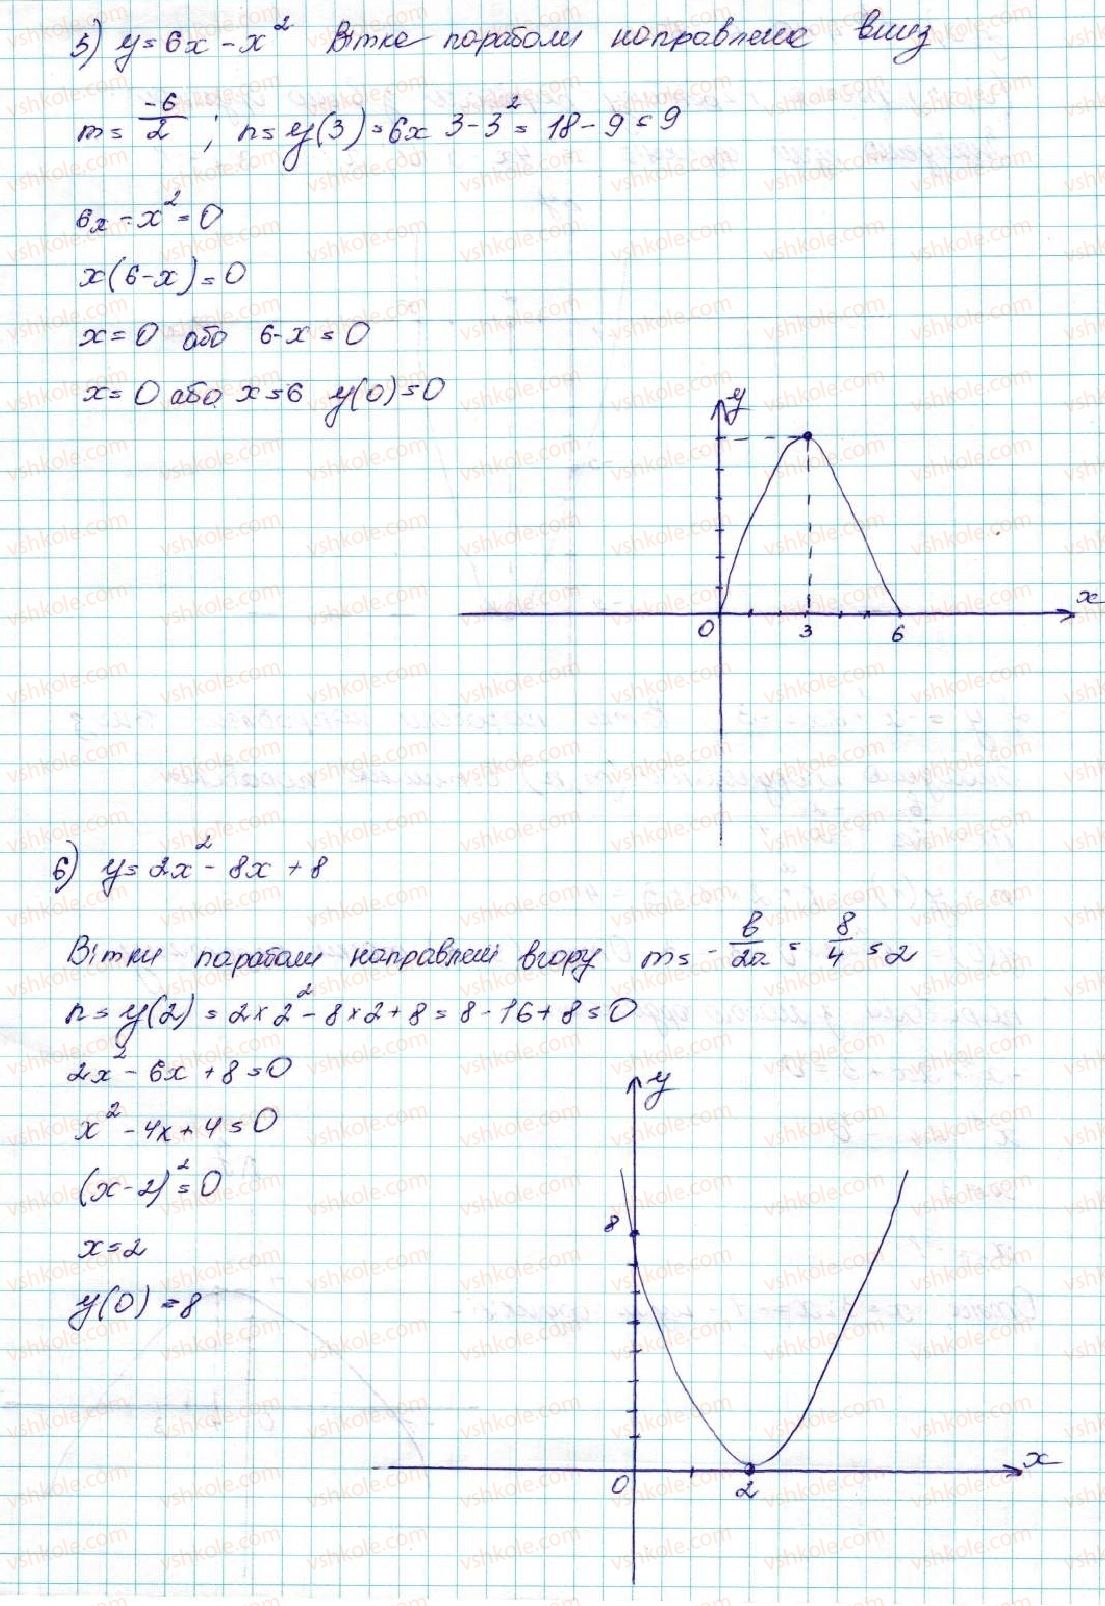 5) y = 6x - x² Вітке параболи направлене вниз
m = -6/2 ; n = y(3) = 6x 3 - 3² = 18 - 9 = 9
6x - x² = 0
x(6-x) = 0
x = 0 або 6-x = 0
x = 0 або x = 6 y(0) = 0
y
x
0 3 6
6) y = 2x² - 8x + 8
Вітки параболи направлені вгору m = - b/2a = 8/4 = 2
n = y(2) = 2 × 2² - 8 × 2 + 8 = 8 - 16 + 8 = 0
2x² - 6x + 8 = 0
x² - 4x + 4 = 0
(x-2)² = 0
x = 2
y(0) = 8
y
8
x
0 2
vshkole.com